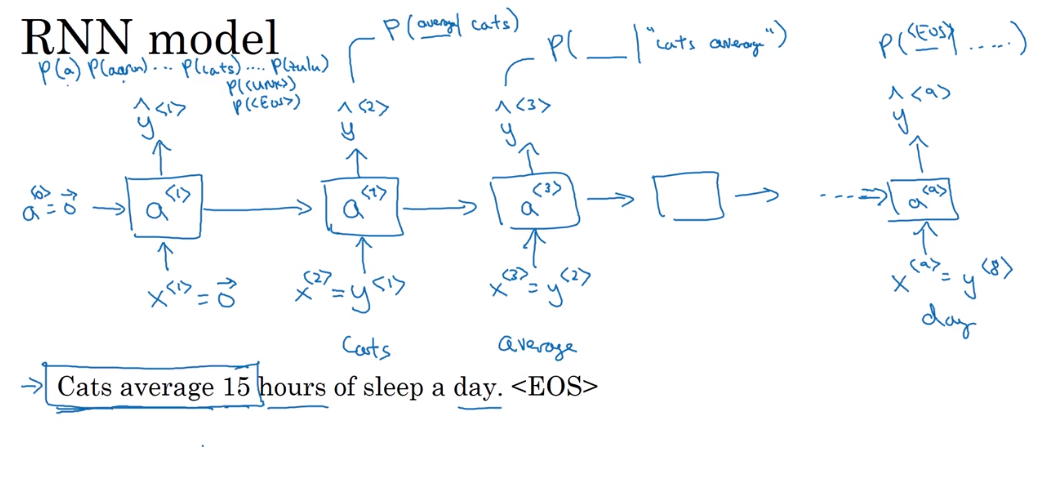 RNN model
P(a) P(aaron) ... P(cats) .... P(zulu)
P(<UNK>)
P(<EOS>)
P(average | cats)
P(___ | "cats average")
P(<EOS> | .....)
ŷ<1>
ŷ<2>
ŷ<3>
ŷ<9>
a<0> = 0⃗
a<1>
a<2>
a<3>
a<9>
x<1> = 0⃗
x<2> = y<1>
x<3> = y<2>
x<9> = y<8>
Cats
average
day
Cats average 15 hours of sleep a day. <EOS>